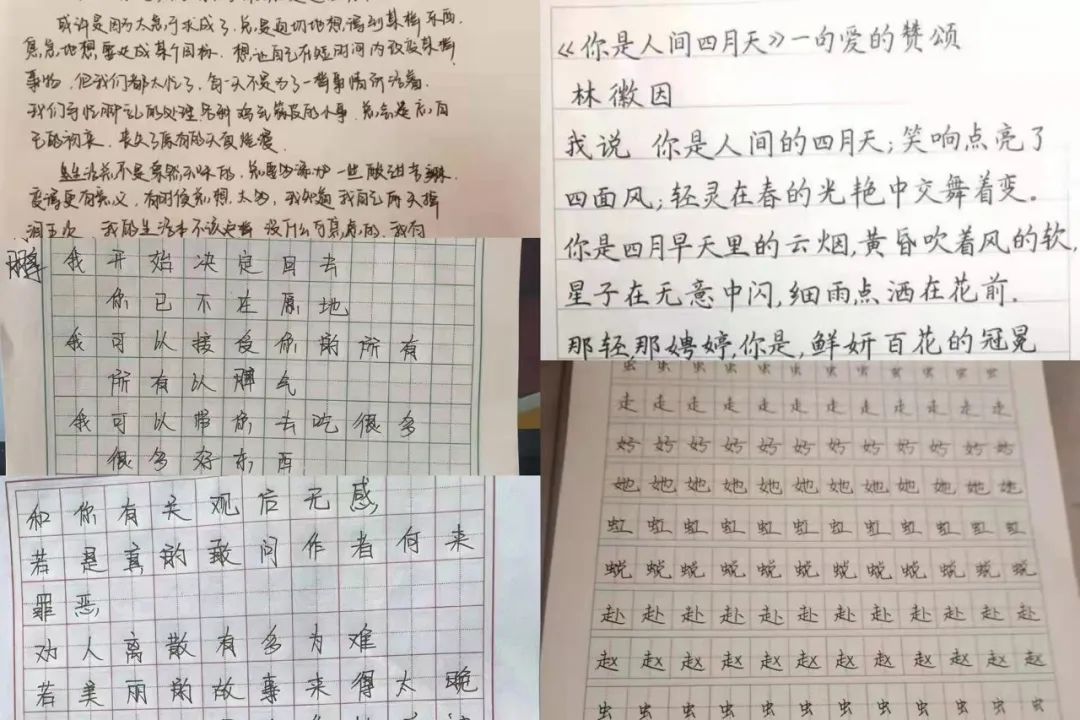 或许是因为太急于求成了，总是迫切地想得到某样东西，
急急地想要达成某个目标，想让自己在短时间内改变某些
事物，但我们都太忙了，每一天不是为了一些事情所活着，
我们
的初衷，丧失了原有的
生活并不是索然无味的，总要为添加一些酸甜苦辣，
变得更有意义，有时侯总想太多，我知道我自己
我的生活本不该这样，没什么可焦虑的，我有
脾
我开始决定回去
你已不在原地
我可以接受你的所有
所有以脾气
我可以带你去吃很多
很多好东西
和你有关观后无感
若是真的敢问作者何来
罪恶
劝人离散有多为难
若美丽的故事来得太晚
《你是人间四月天》一句爱的赞颂
林徽因
我说 你是人间的四月天;笑响点亮了
四面风;轻灵在春的光艳中交舞着变.
你是四月早天里的云烟,黄昏吹着风的软,
星子在无意中闪,细雨点洒在花前.
那轻,那娉婷,你是,鲜妍百花的冠冕
虫 虫 虫 虫 虫 虫 虫 虫 虫 虫 虫
走 走 走 走 走 走 走 走 走 走 走
她 她 她 她 她 她 她 她 她 她 她
虹 虹 虹 虹 虹 虹 虹 虹 虹 虹 虹
蜕 蜕 蜕 蜕 蜕 蜕 蜕 蜕 蜕 蜕 蜕
赴 赴 赴 赴 赴 赴 赴 赴 赴 赴 赴
赵 赵 赵 赵 赵 赵 赵 赵 赵 赵 赵
虫 虫 虫 虫 虫 虫 虫 虫 虫 虫